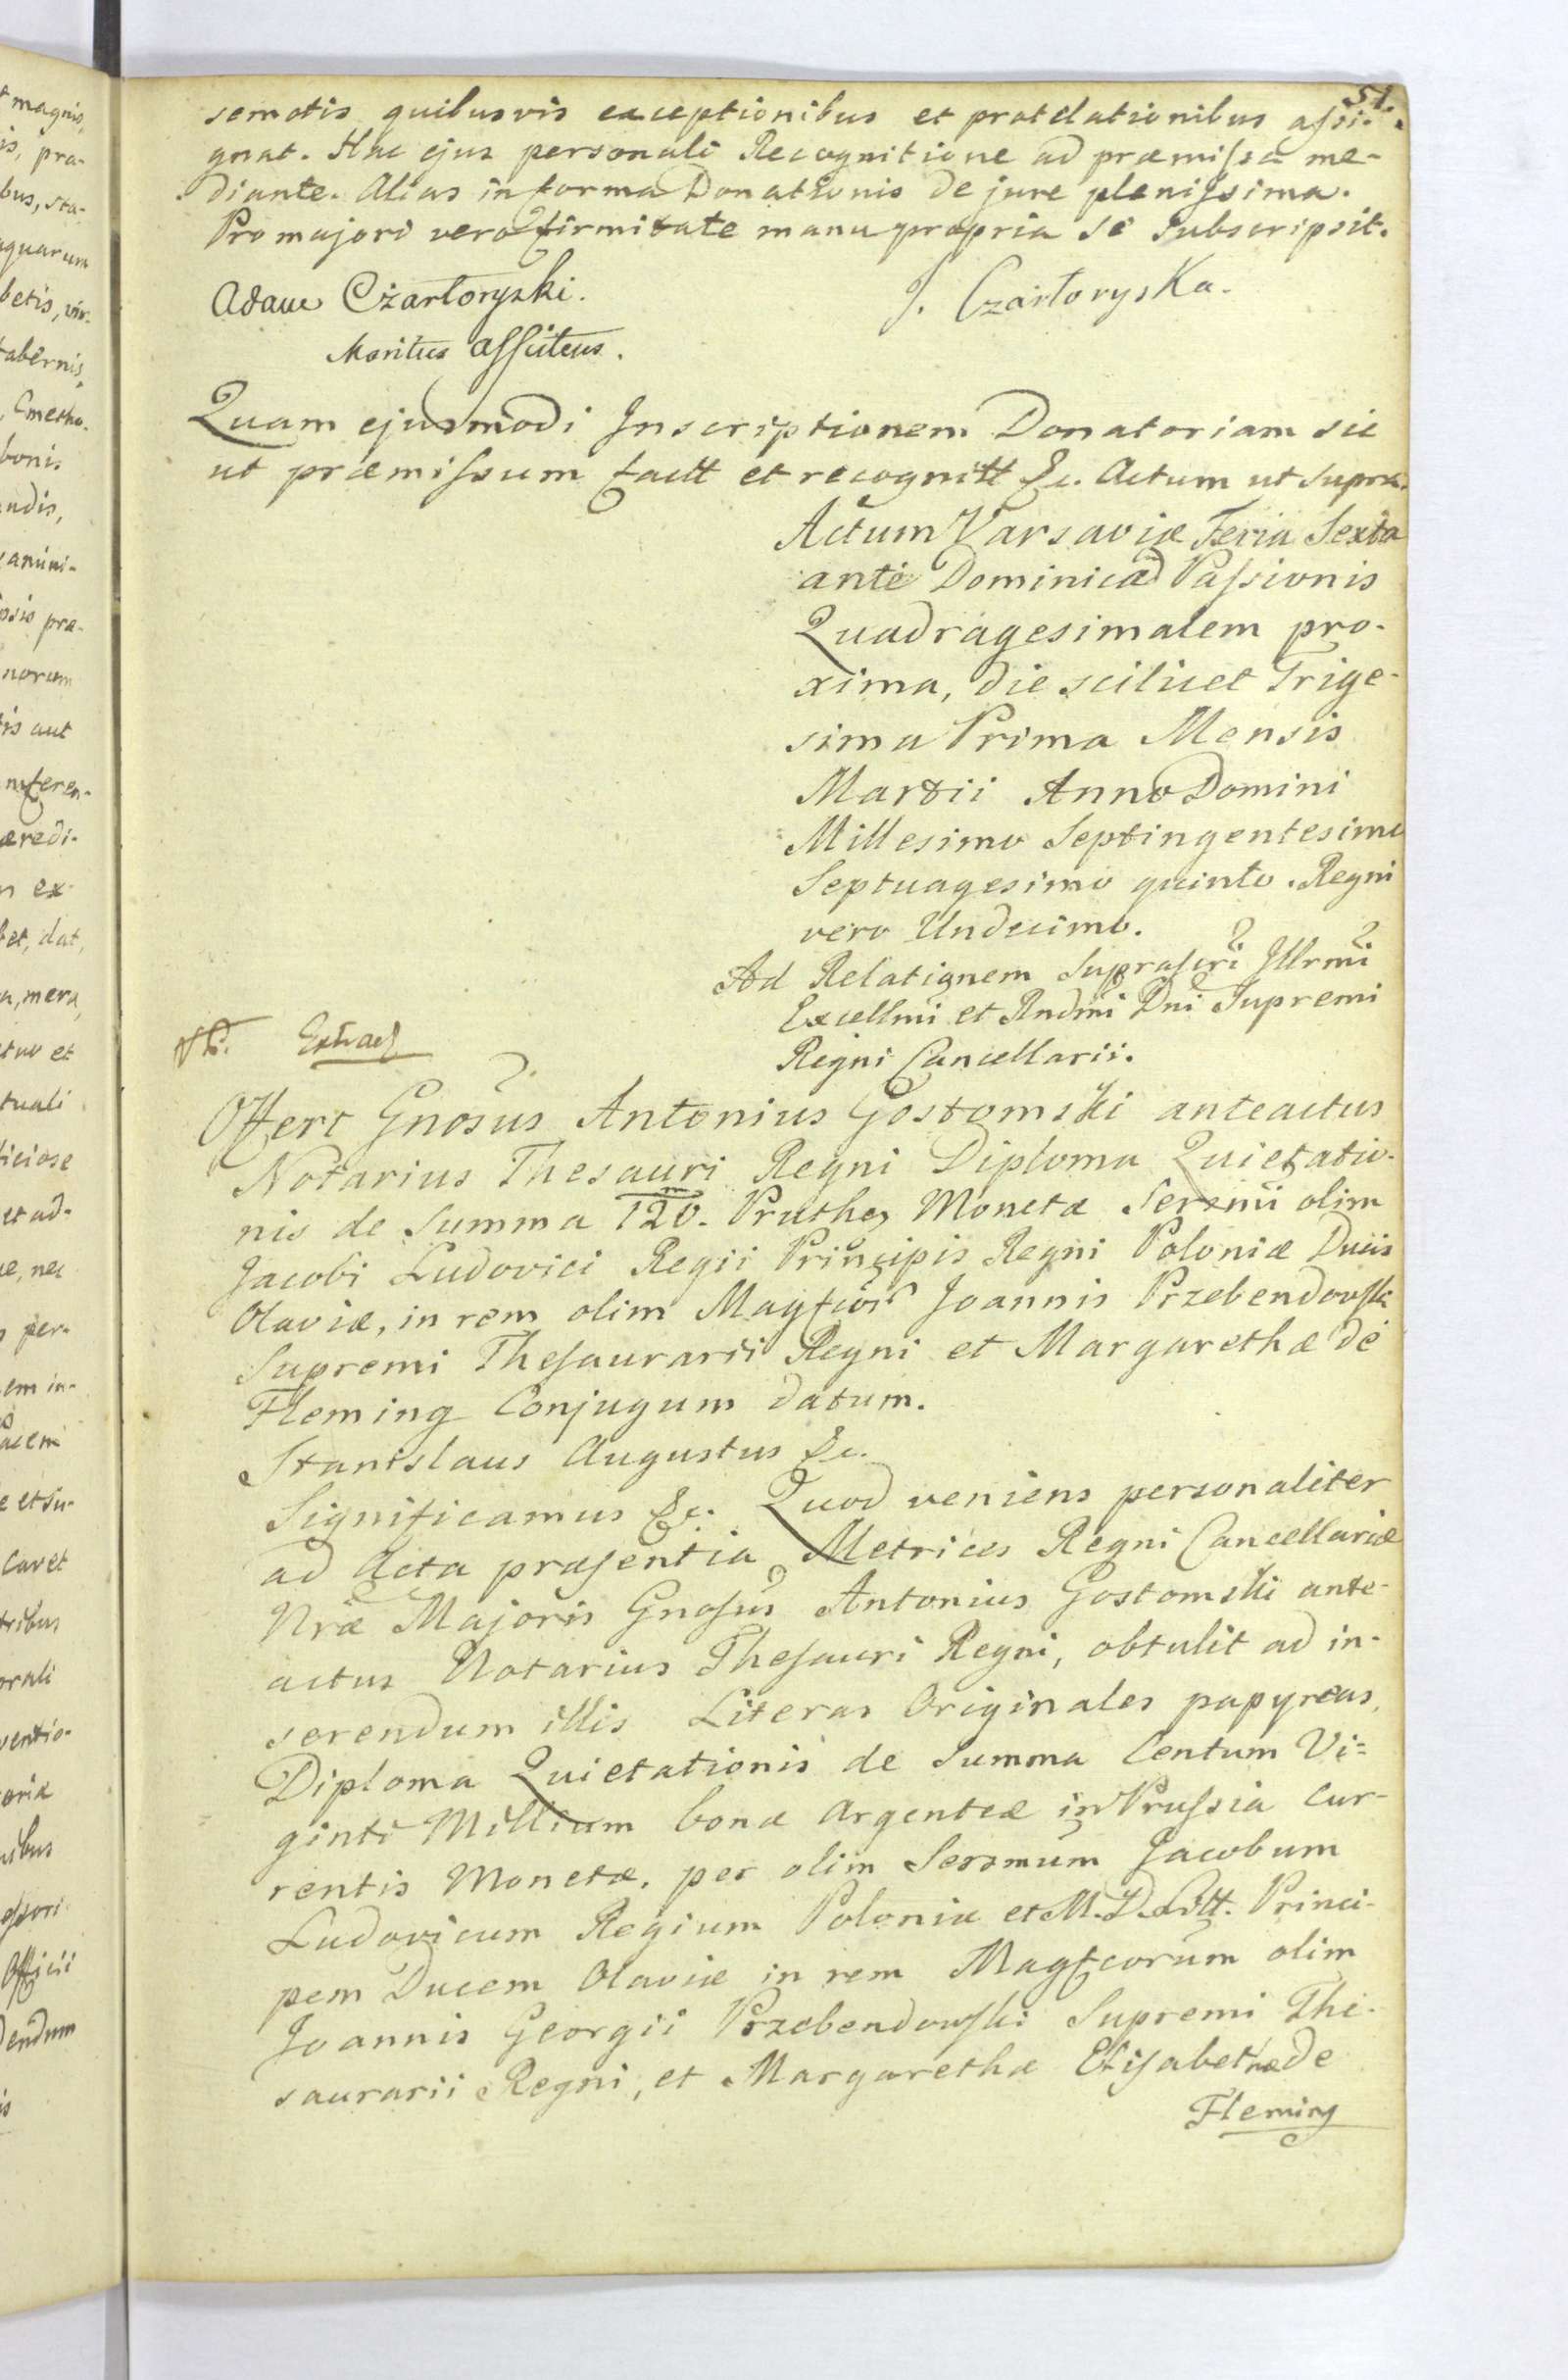 51.
semotis quibusvis exceptionibus et protelationibus assi-
gnat. Hac ejus personali Recognitione ad præmissa me-
diante. Alias in forma Donationis de jure plenissima.
Pro majori vero firmitate manu propria se subscripsit.
Adam Czartoryski. J. Czartoryska.
Maritus assistens.
Quam ejusmodi Inscriptionem Donatoriam sic
ut præmissum factt et recognitt &c. Actum ut supra.
Actum Varsaviæ Feria Sexta
ante Dominicã Passionis
Quadragesimalem pro-
xima, die scilicet Trige-
sima Prima Mensis
Martii Anno Domini
Millesimo Septingentesimo
Septuagesimo quinto. Regni
vero Undecimo.
Ad Relationem suprascri Illrmi
Excellmi et Rndmi Dni Supremi
Regni Cancellarii.
Extrad
Offert Gnosus Antonius Gostomski anteactus
Notarius Thesauri Regni Diploma Quietatio-
nis de Summa 120.m Pruthes Monetæ Sereñmi olim
Jacobi Ludovici Regii Principis Regni Poloniæ Ducis
Olaviæ, in rem olim Magfcor Joannis Przebendowski
Supremi Thesaurarii Regni et Margarethæ de
Fleming Conjugum datum.
Stanislaus Augustus &c.
Significamus &c. Quod veniens personaliter
ad Acta præsentia Metrices Regni Cancellariæ
Nræ Majoris Gnosus Antonius Gostomski ante-
actus Notarius Thesauri Regni, obtulit ad in-
serendum illis Literas Originales papyreas,
Diploma Quietationis de Summa Centum Vi=
ginti Millium bonæ Argenteæ in Prussia Cur-
rentis Monetæ, per olim Serenmum Jacobum
Ludovicum Regium Poloniæ et M. D. Litt. Princi-
pem Ducem Olaviæ in rem Magfcorum olim
Joannis Georgii Przebendowski Supremi The-
saurarii Regni, et Margarethæ Elisabethæ de
Fleming